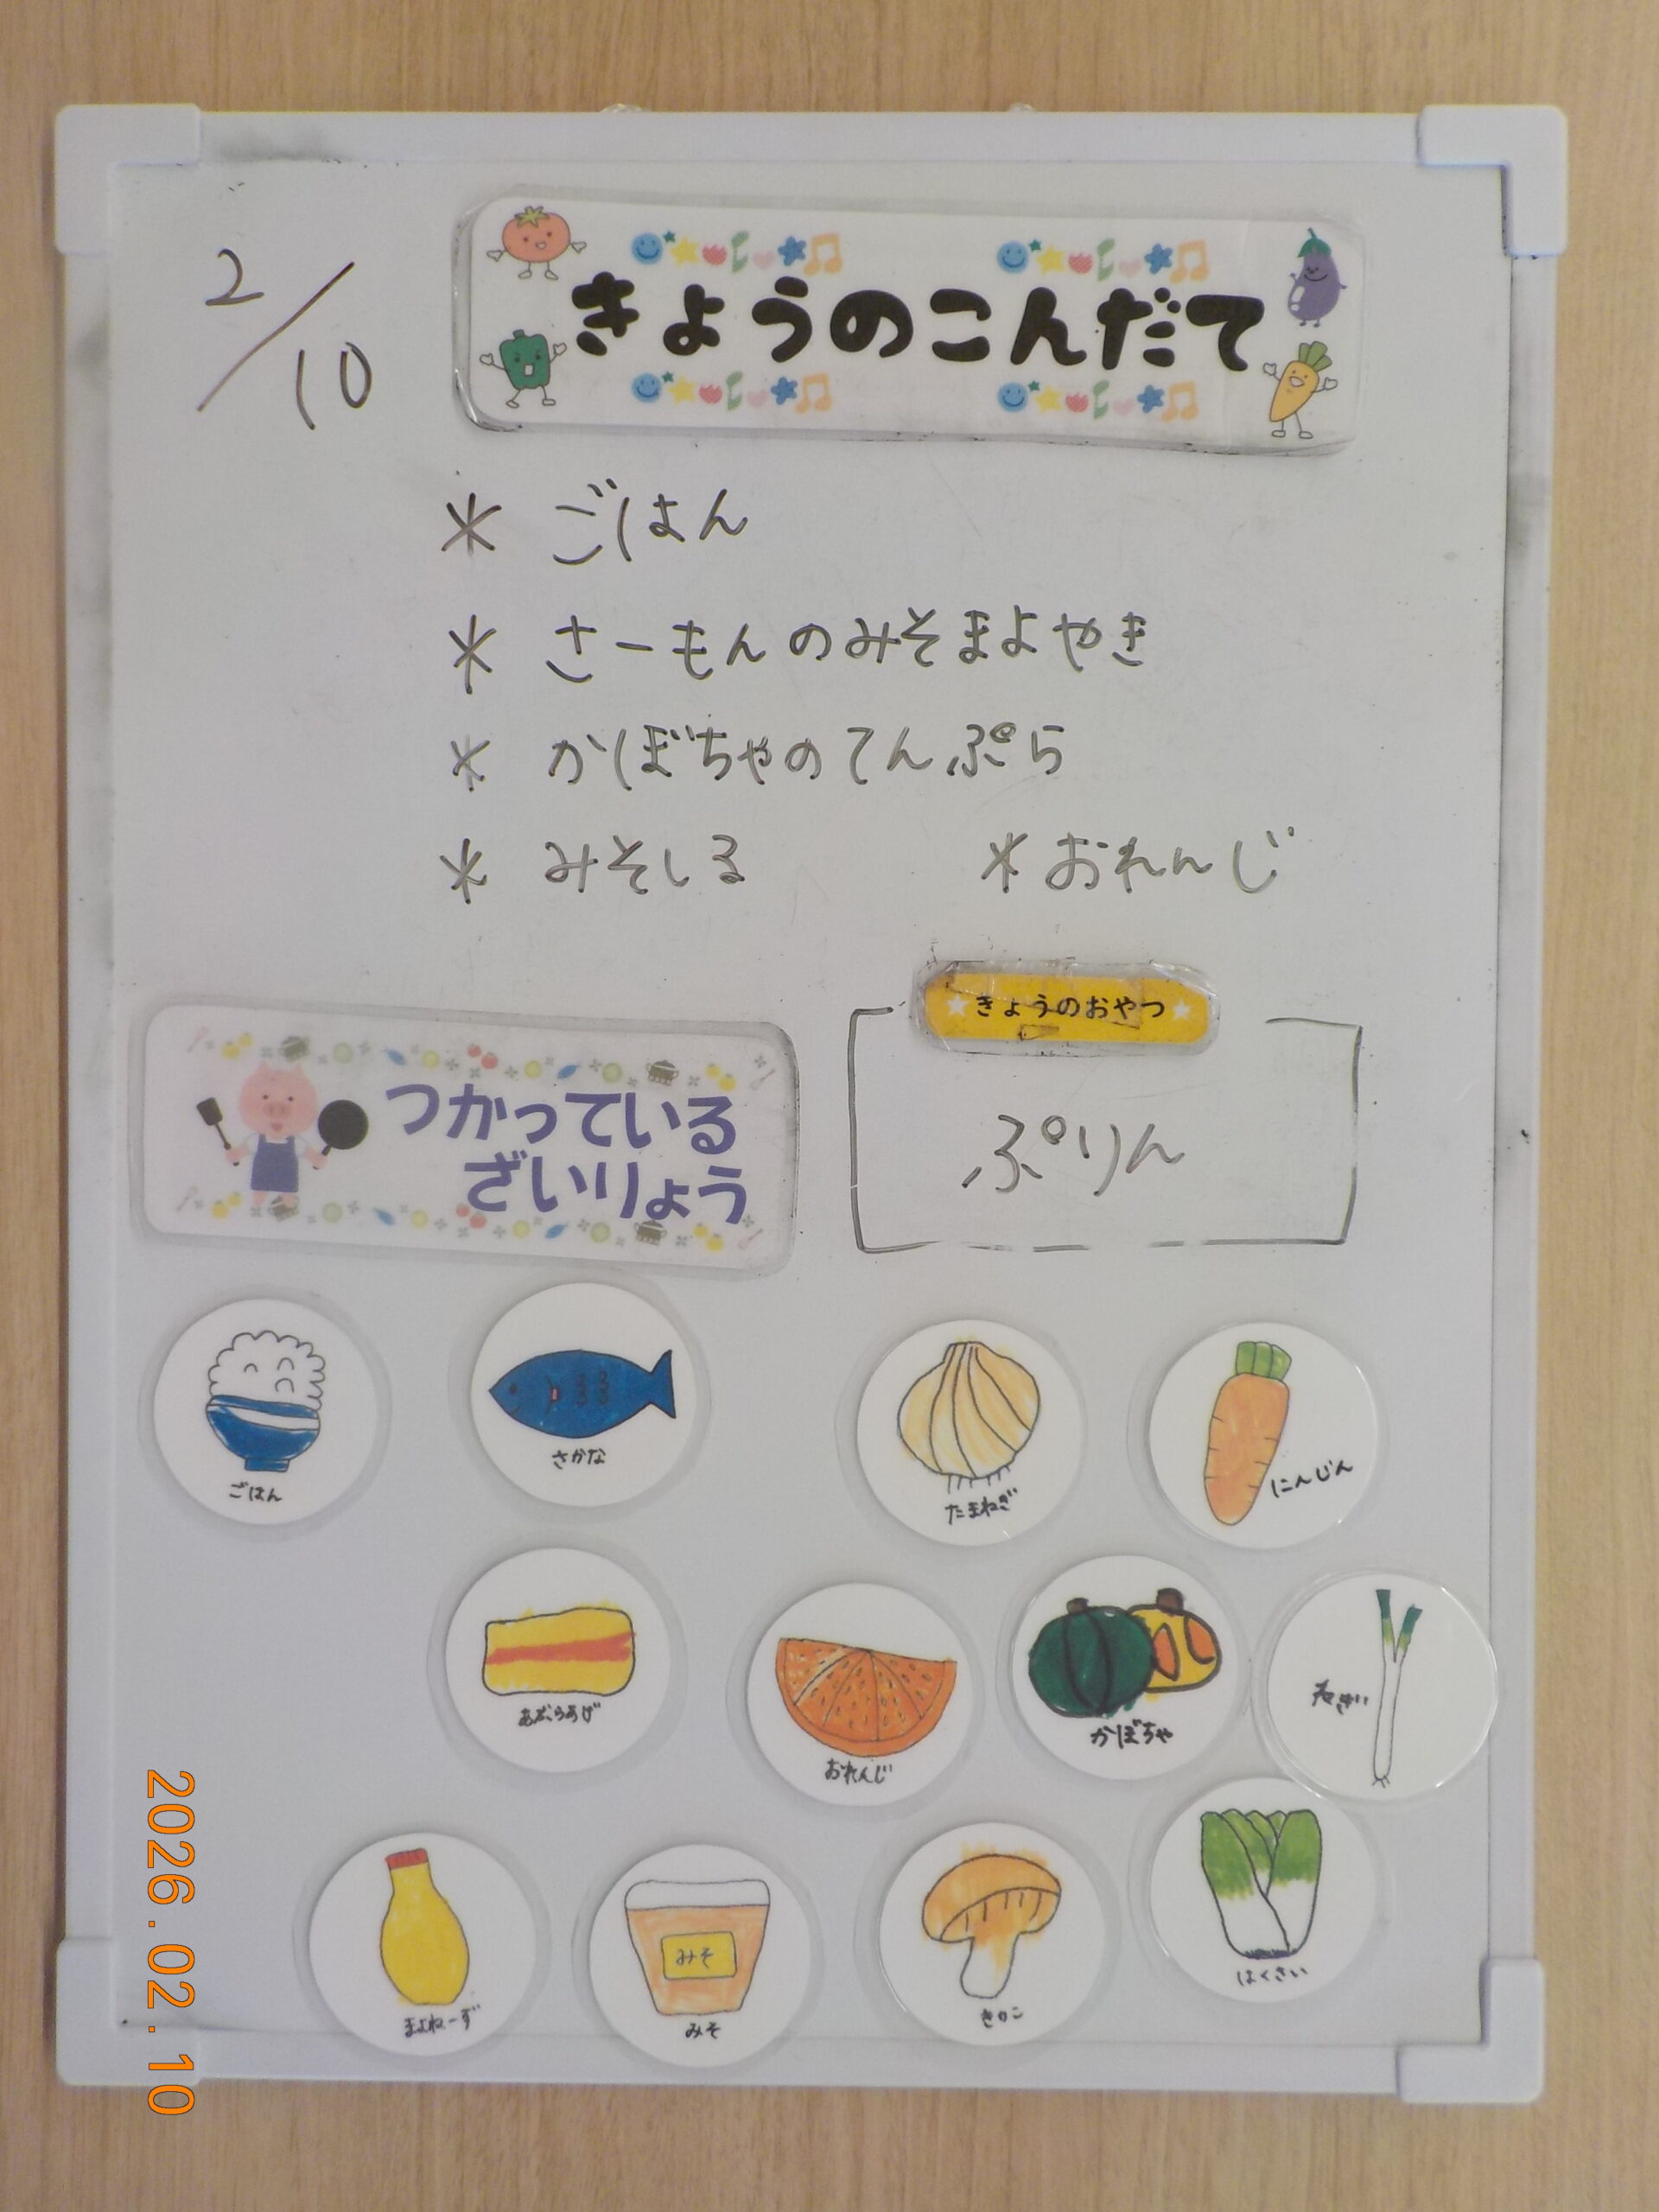 2/10
きょうのこんだて
* ごはん
* さーもんのみそまよやき
* かぼちゃのてんぷら
* みそしる * おれんじ
きょうのおやつ
ぷりん
つかっている
ざいりょう
ごはん
さかな
たまねぎ
にんじん
あぶらあげ
おれんじ
かぼちゃ
ねぎ
まよねーず
みそ
みそ
きのこ
はくさい
2026.02.10